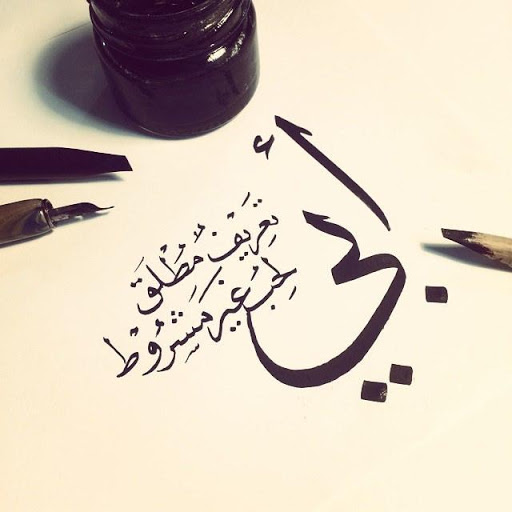 أبي
تعريفٌ مُطْلَق
لِحُب غَير مَشرُوْط